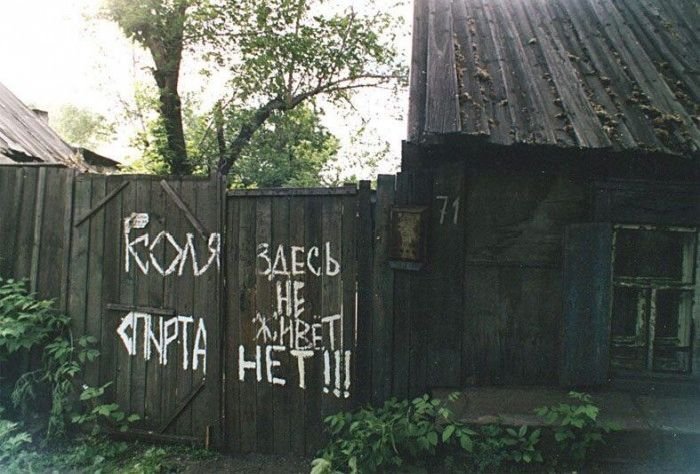 КОЛЯ ЗДЕСЬ
НЕ
ЖИВЁТ
СПИРТА НЕТ!!!
71